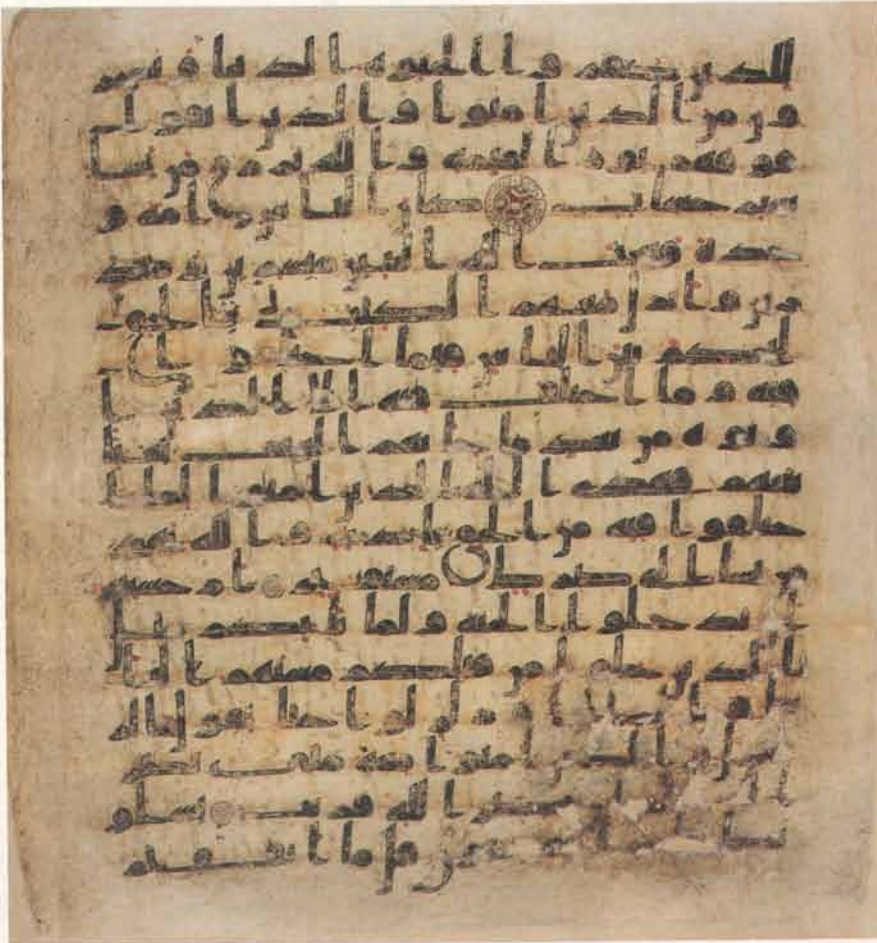 للذين كفروا الحيوة الدنيا ويسخر
ون من الذين امنوا والذين اتقوا
فوقهم يوم القيمة والله يرزق من يشا
بغير حساب كان الناس امة و
حدة فبعث الله النبيين مبشرين ومنذ
رين وانزل معهم الكتب بالحق
ليحكم بين الناس فيما اختلفوا
فيه وما اختلف فيه الا الذين ا
وتوه من بعد ما جاتهم البينت بغيا
بينهم فهدى الله الذين امنوا لما ا
ختلفوا فيه من الحق باذنه والله يهدي
من يشا الى صرط مستقيم ام حسبتم
ان تدخلوا الجنة ولما ياتكم مثل
الذين خلوا من قبلكم مستهم البا
سا وزلزلوا حتى يقول ال
رسول والذين امنوا معه متى نصر
ان نصر الله قريب يسلو
قل ما انفقتم